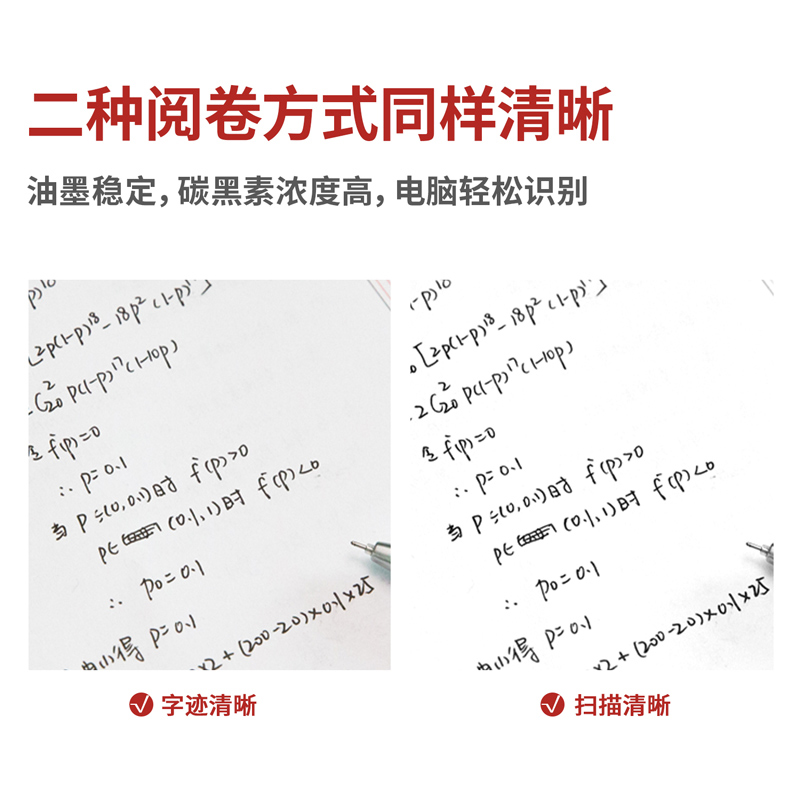 二种阅卷方式同样清晰
油墨稳定，碳黑素浓度高，电脑轻松识别
[2p(1-p)¹⁸-18p²(1-p)¹⁷]
2C²₂₀ p(1-p)¹⁷(1-10p)
令 f'(p)=0
∴ p=0.1
当 P∈(0,0.1)时 f'(p)>0
p∈ (0.1,1)时 f'(p)<0
∴ p₀=0.1
由(1)得 p=0.1
×2+(200-20)×0.1×25
·[2p(1-p)¹⁸-18p²(1-p)¹⁷]
·2C²₂₀ p(1-p)¹⁷(1-10p)
令 f'(p)=0
∴ p=0.1
当 P∈(0,0.1)时 f'(p)>0
p∈ (0.1,1)时 f'(p)<0
∴ p₀=0.1
由(1)得 p=0.1
×2+(200-20)×0.1×25
字迹清晰
扫描清晰